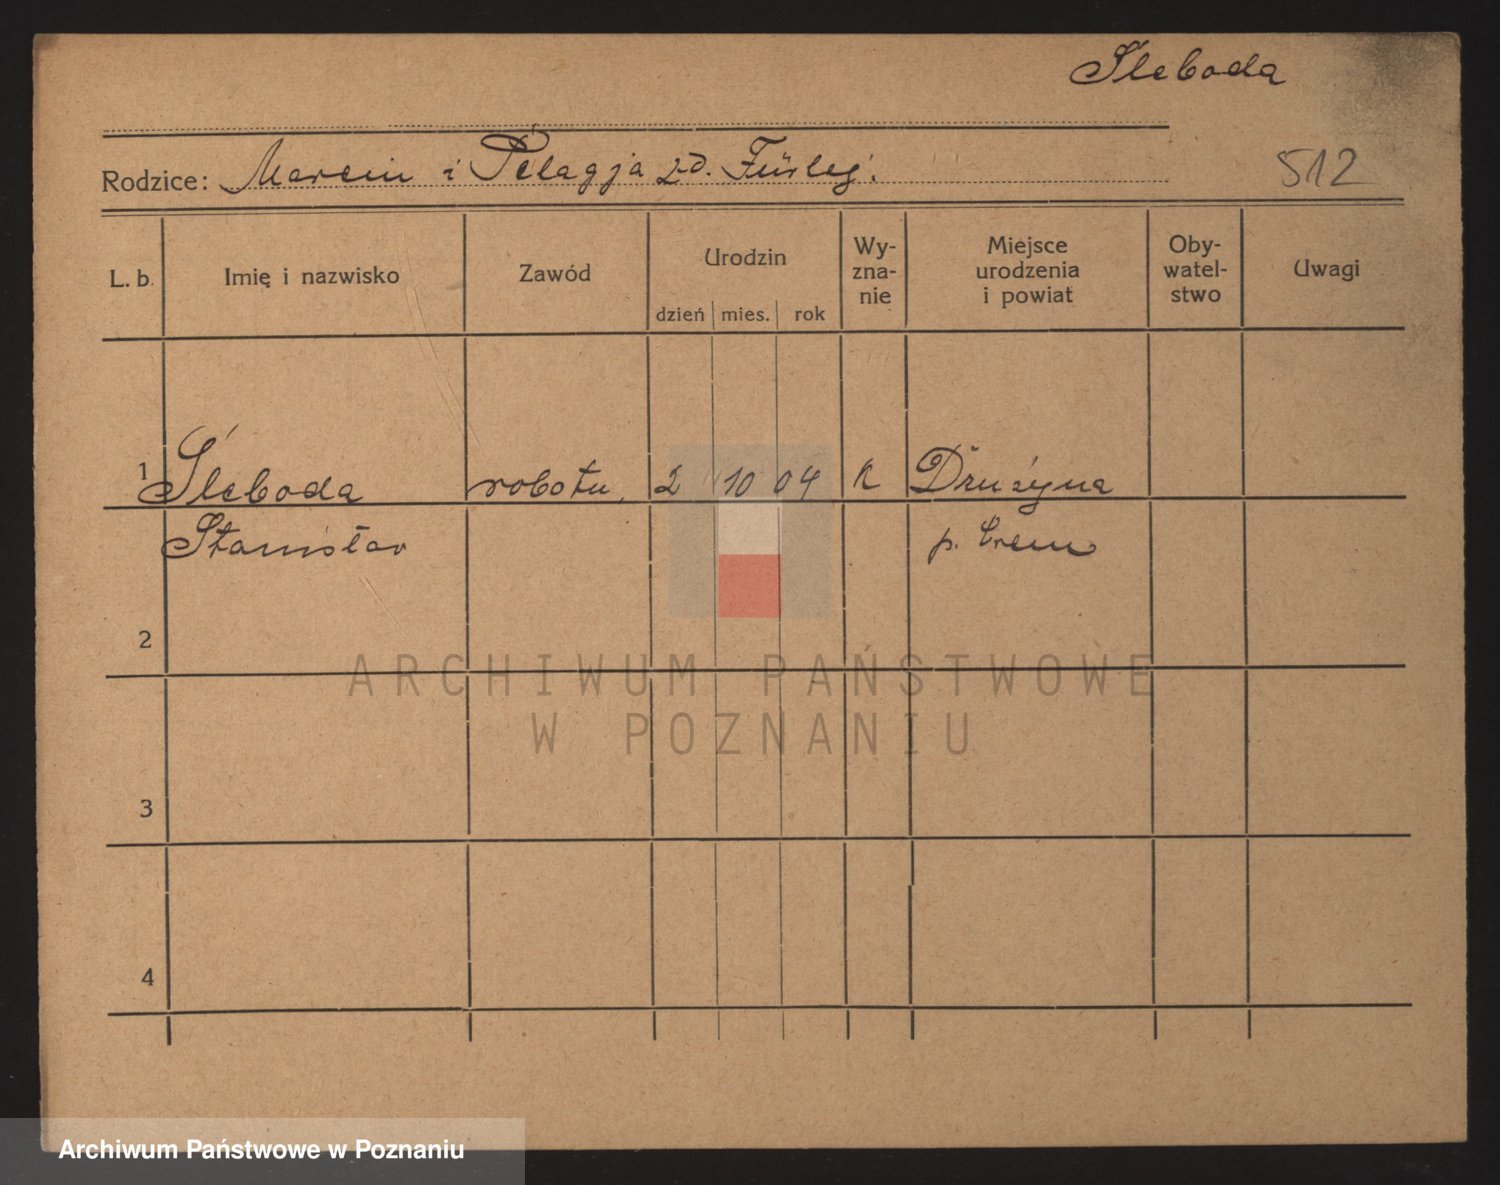 Śleboda
Rodzice: Marcin i Pelagja zd.
512
L. b. Imię i nazwisko Zawód Urodzin dzień mies. rok Wy-zna-nie Miejsce urodzenia i powiat Oby-watel-stwo Uwagi
1 Śleboda robotn. 2 10 04 k Drużyna
Stanisław p. Śrem
2
3
4
ARCHIWUM PAŃSTWOWE
W POZNANIU
Archiwum Państwowe w Poznaniu